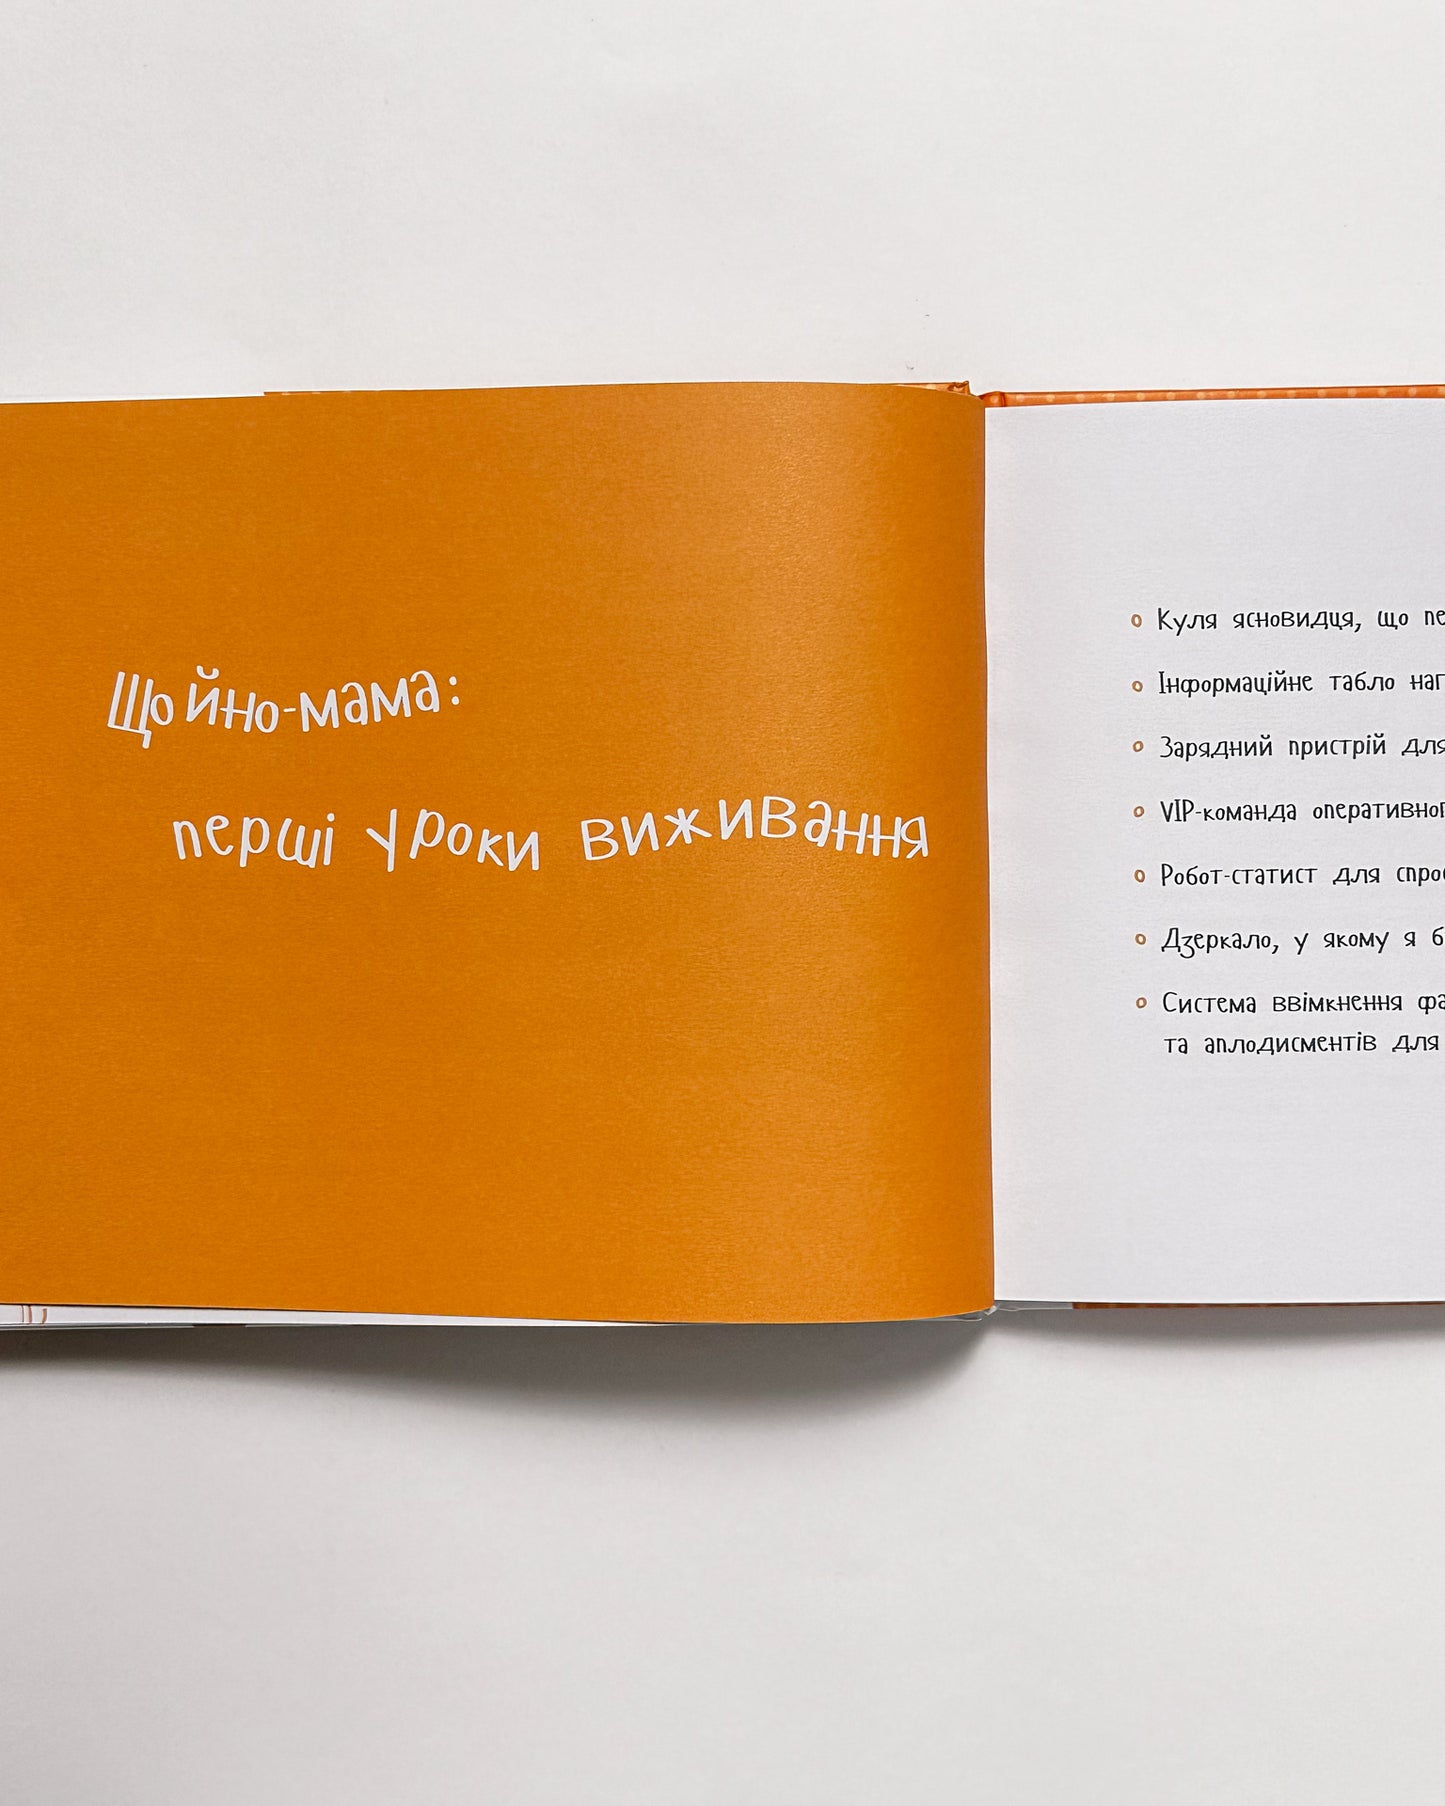 Щойно-мама:
перші уроки виживання
Куля ясновидця, що
Інформаційне табло
Зарядний пристрій для
VIP-команда
Робот-статист для
Дзеркало, у якому я
Система ввімкнення
та аплодисментів для